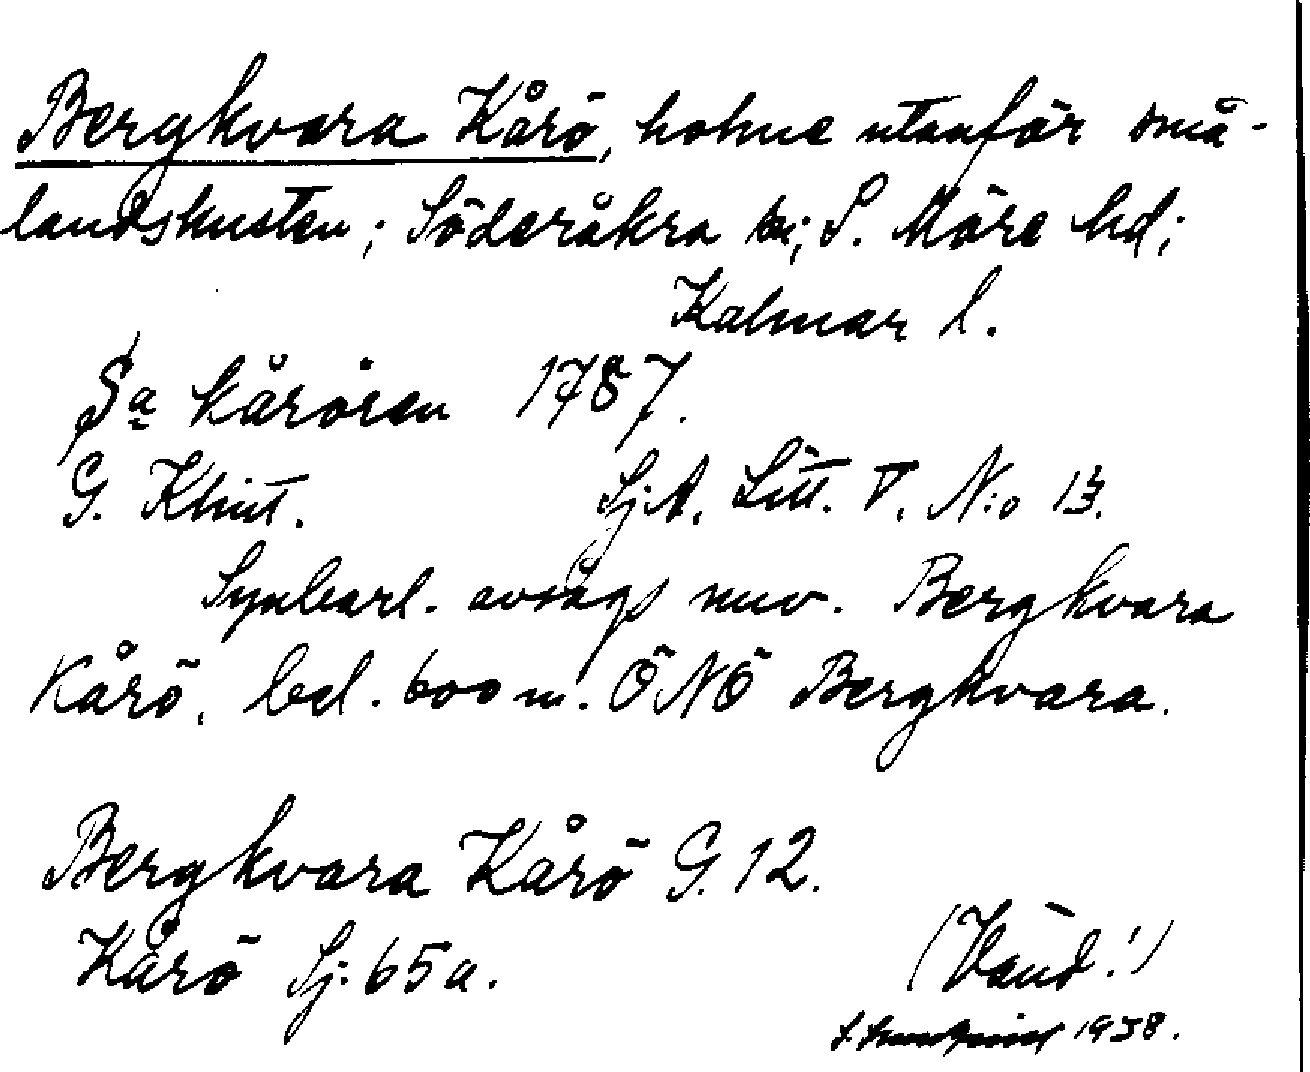 Bergkvara Kårö, holme utanför små-
landskusten; Söderåkra sn; S. Möre hd;
Kalmar l.
Sa Kåröien 1787.
G. Klint. Sj.A. Litt. V. N:o 13.
Synbarl. avsågs nuv. Bergkvara
Kårö, bel. 600 m. ÖNÖ Bergkvara.
Bergkvara Kårö G. 12.
Kårö Sj. 65a.
(Vänd!)
1938.